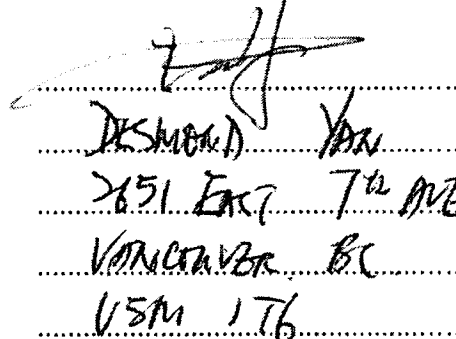 DESMOND YAN
2651 EAST 7th AVE
VANCOUVER BC
V5M 1T6